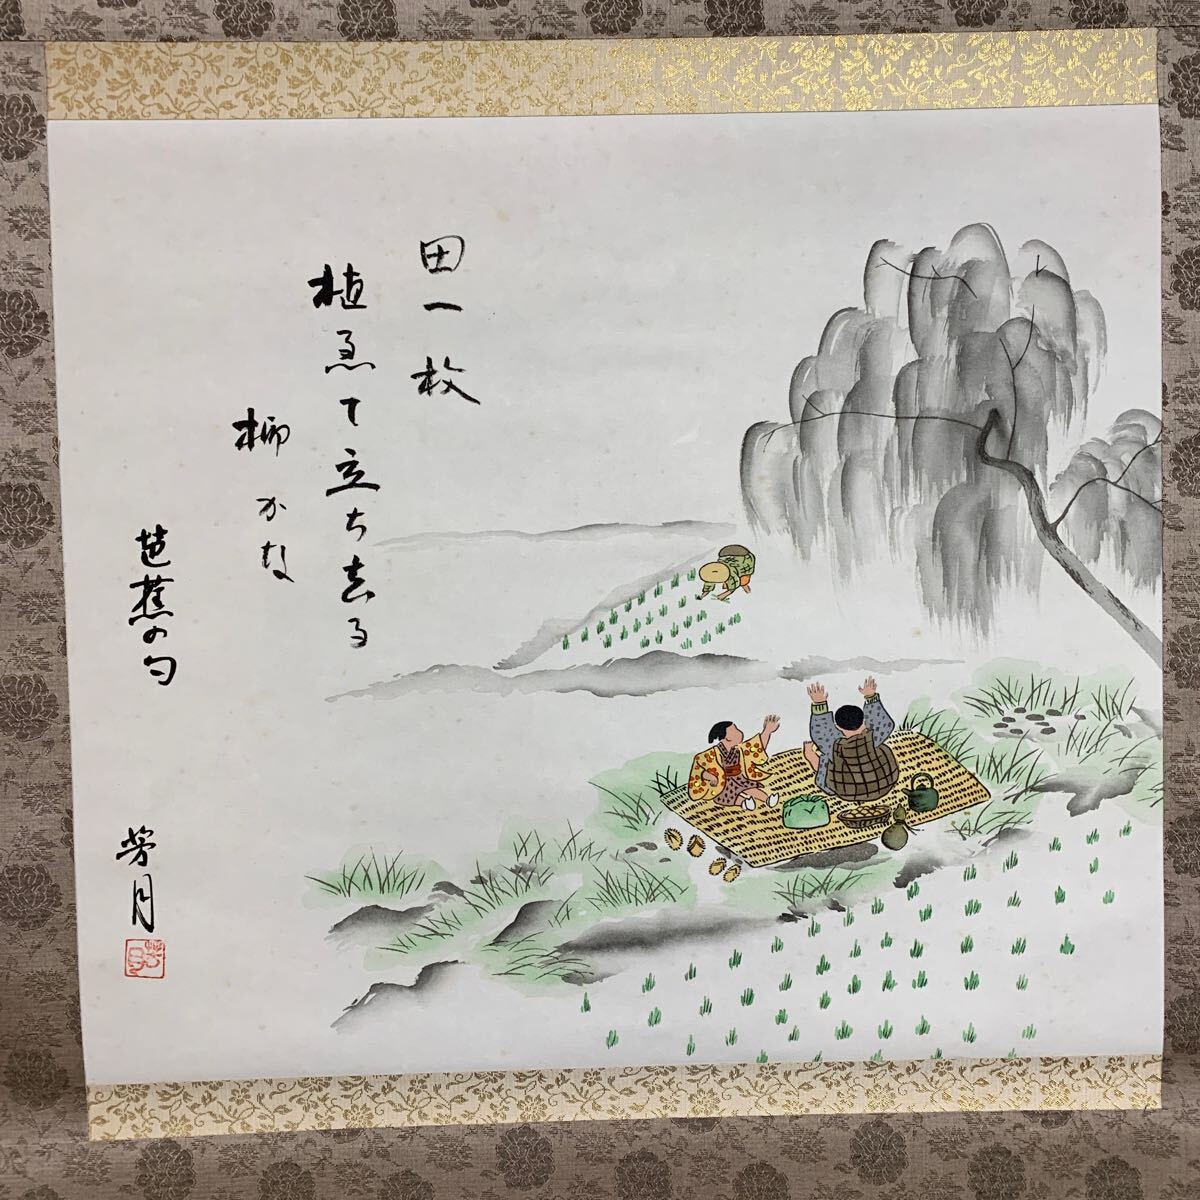 田一枚
植ゑて立ち去る
柳かな
芭蕉の句
芳月